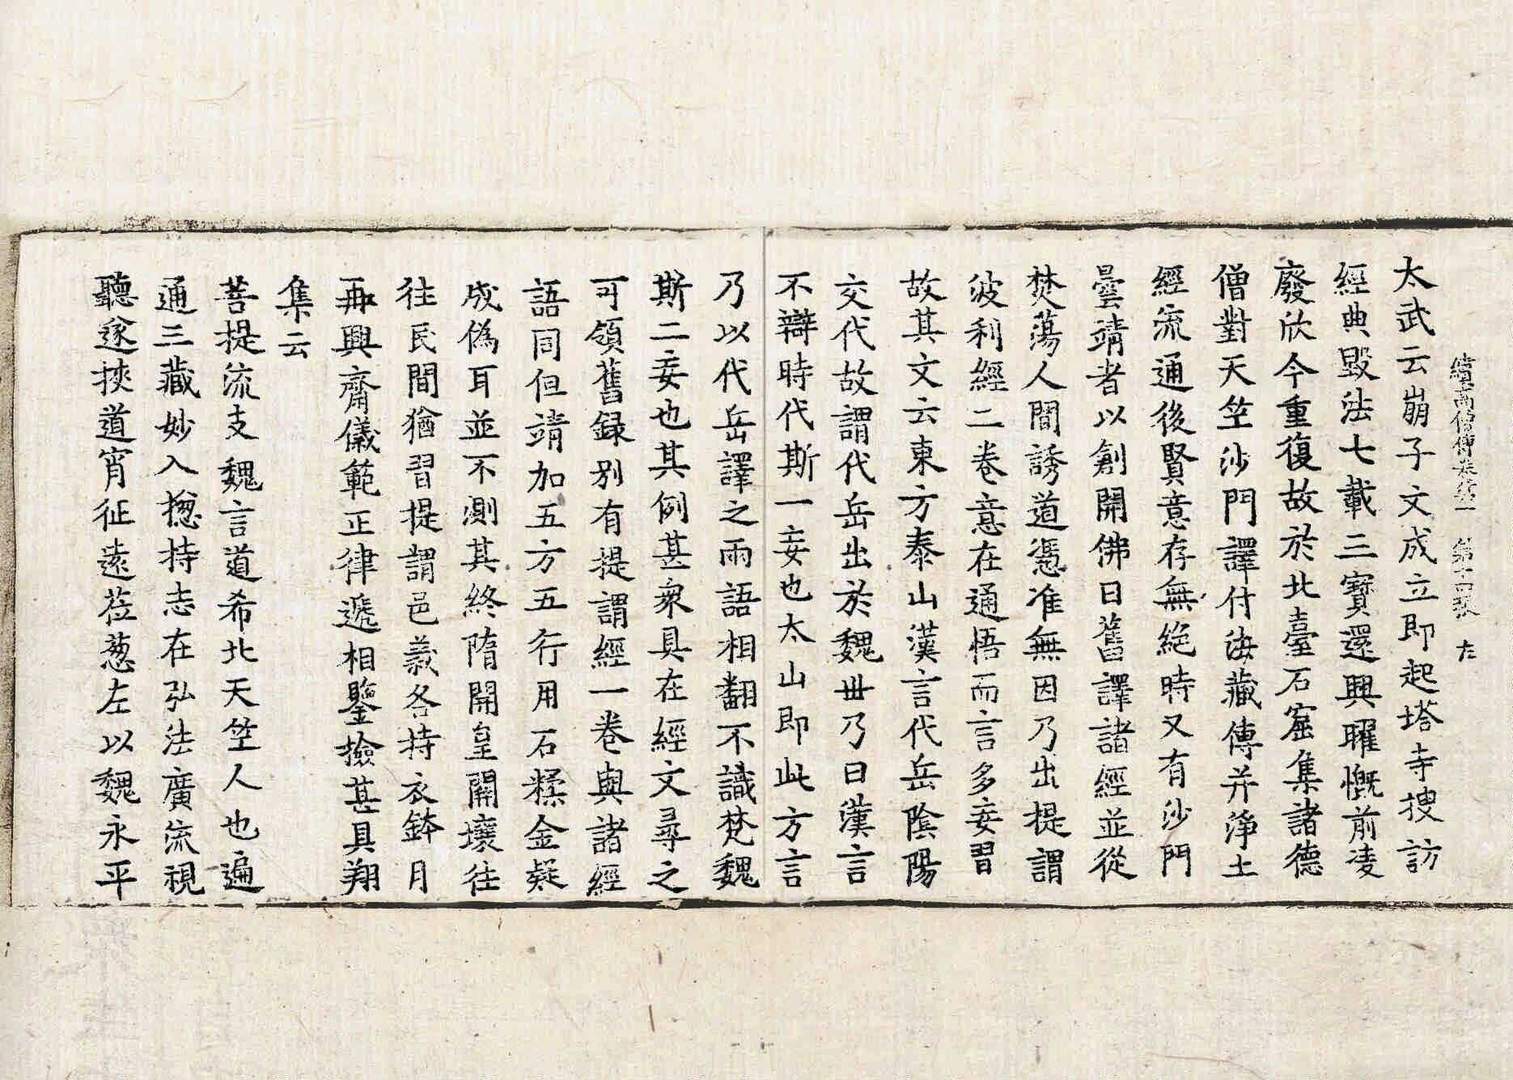 續高僧傳卷第一 第十四張 左
太武云崩子文成立即起塔寺搜訪
經典毀法七載三寶還興曜慨前淩
廢欣今重復故於北臺石窟集諸德
僧對天竺沙門譯付法藏傳并淨土
經流通後賢意存無絕時又有沙門
曇靖者以創開佛日舊譯諸經並從
焚蕩人間誘道憑准無因乃出提謂
波利經二卷意在通悟而言多妄習
故其文云東方泰山漢言代岳陰陽
交代故謂代岳出於魏世乃曰漢言
不辯時代斯一妄也太山即此方言
乃以代岳譯之兩語相翻不識梵魏
斯二妄也其例甚眾具在經文尋之
可領舊錄別有提謂經一卷與諸經
語同但靖加五方五行用石糅金疑
成偽耳並不測其終隋開皇關壤往
往民間猶習提謂邑義各持衣鉢月
再興齋儀範正律遞相鑒撿甚具翔
集云
菩提流支魏言道希北天竺人也遍
通三藏妙入揔持志在弘法廣流視
聽遂挾道宵征遠莅葱左以魏永平